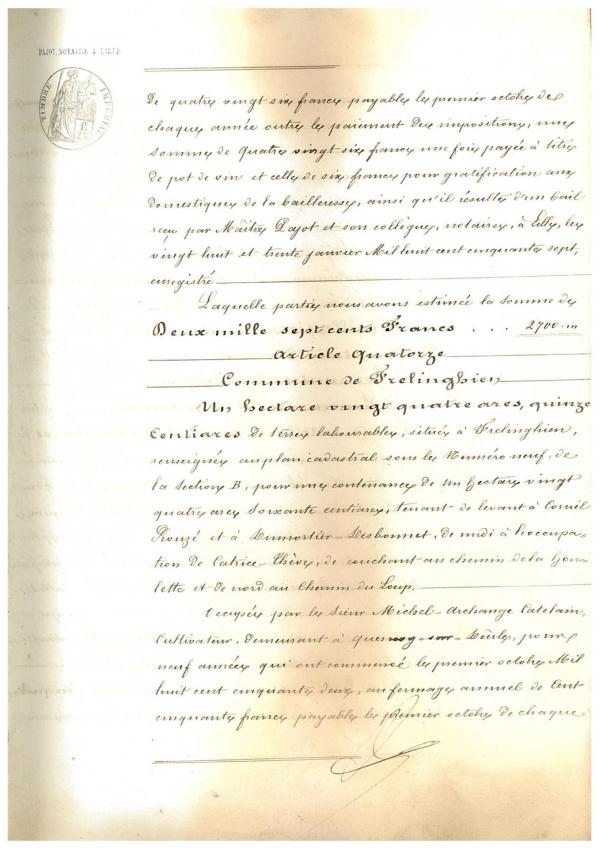 PAJOT, NOTAIRE A LILLE.
TIMBRE IMPERIAL
De quatre vingt six francs payable le premier octobre de
chaque année outre le paiement des impositions, une
somme de quatre vingt six francs une fois payée à titre
de pot de vin et celle de six francs pour gratification aux
domestiques de la bailleresse, ainsi qu'il résulte d'un bail
reçu par Maître Pajot et son collègue, notaires, à Lille, les
vingt huit et trente janvier Mil huit cent cinquante sept,
enregistré
Laquelle partie nous avons estimée la somme de
Deux mille sept cents Francs . . . 2700 "
Article Quatorze
Commune de Frelinghien
Un hectare vingt quatre ares, quinze
Centiares de terre labourable, située à Frelinghien,
renseignée au plan cadastral sous le Numéro neuf, de
la Section B, pour une contenance de Un hectare vingt
quatre ares soixante centiares, tenant de levant à
Rouzé et à Dumortier-Desbonnet, de midi à l'occupa-
tion de Catrice-Thève, de couchant au chemin de la Gou-
lette et de nord au Chemin du Loup.
Occupée par le Sieur Michel-Archange Catelain,
Cultivateur, demeurant à Quesnoy-sur-Deûle, pour
neuf années qui ont commencé le premier octobre Mil
huit cent cinquante deux, au fermage annuel de Cent
cinquante francs payable le premier octobre de chaque